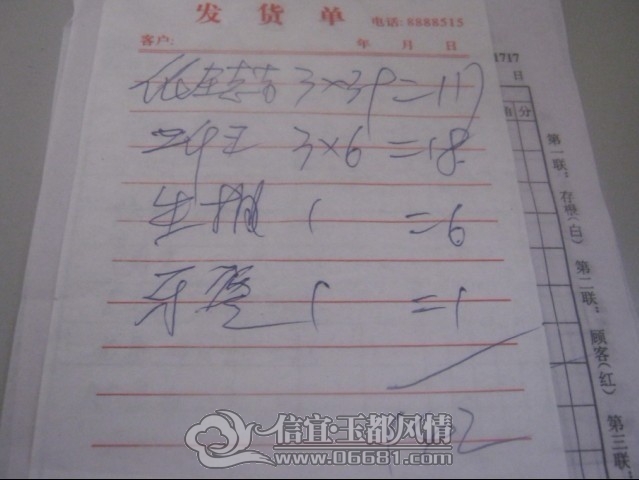 发货单
电话: 8888515
客户: 年 月 日
3×39=117
3×6=18
生 1 =6
牙签 1 =1
信宜·玉都风情
www.06681.com
1717
日
角 分
第一联:存根(白) 第二联:顾客(红) 第三联: